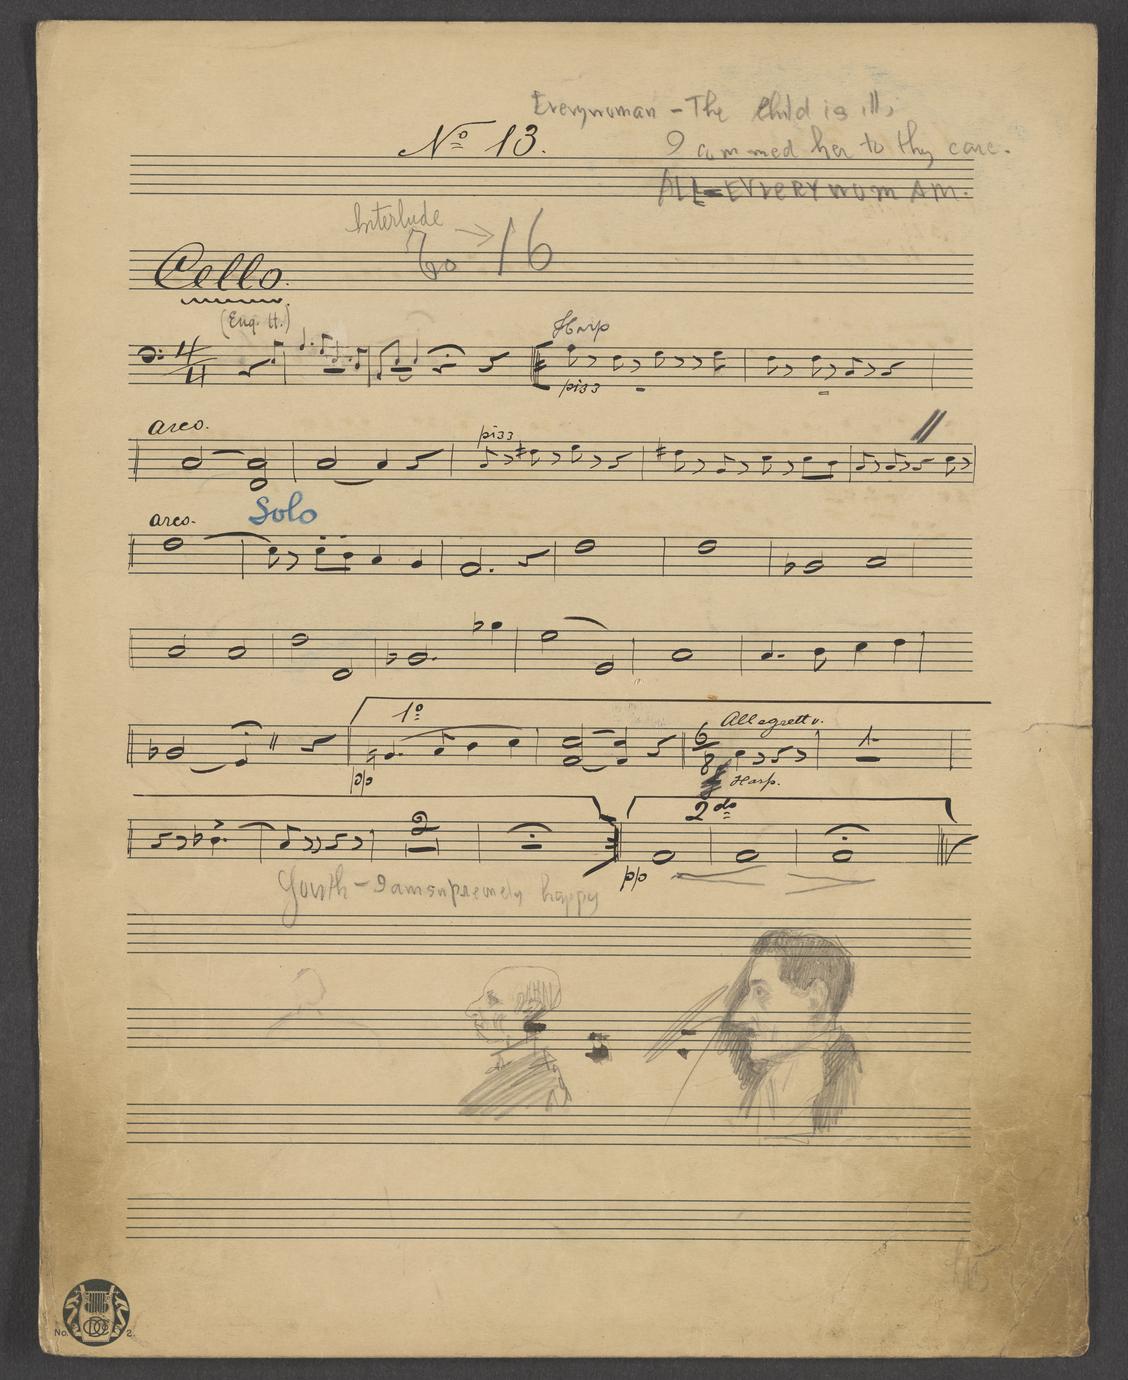 Everywoman - The Child is ill,
No 13.
I commed her to thy care.
ALL - EVERYWOMAM.
Interlude
To → 16
Cello.
(Eng. H.)
Harp
pizz
arco.
pizz
arco.
Solo
1o
Allegretto.
6/8
pp
Harp.
1
2
2do
pp
Youth - I am supremely happy
No. 2.